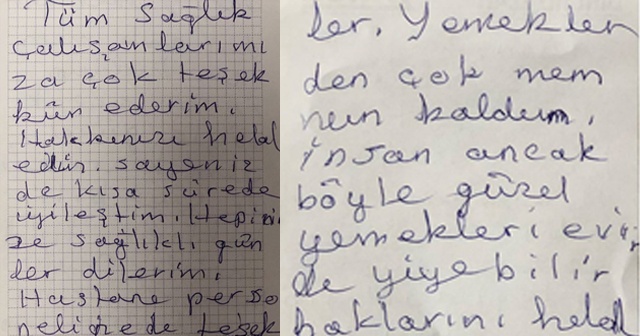 Tüm Sağlık
çalışanlarımı
za çok teşek
kür ederim.
Hakkınızı helal
edin. sayeniz
de kısa sürede
iyileştim. Hepini
ze sağlıklı gün
ler dilerim.
Hastane perso
neline de teşek
ler. Yemekler
den çok mem
nun kaldım.
insan ancak
böyle güzel
yemekleri evin
de yiyebilir
haklarını helal